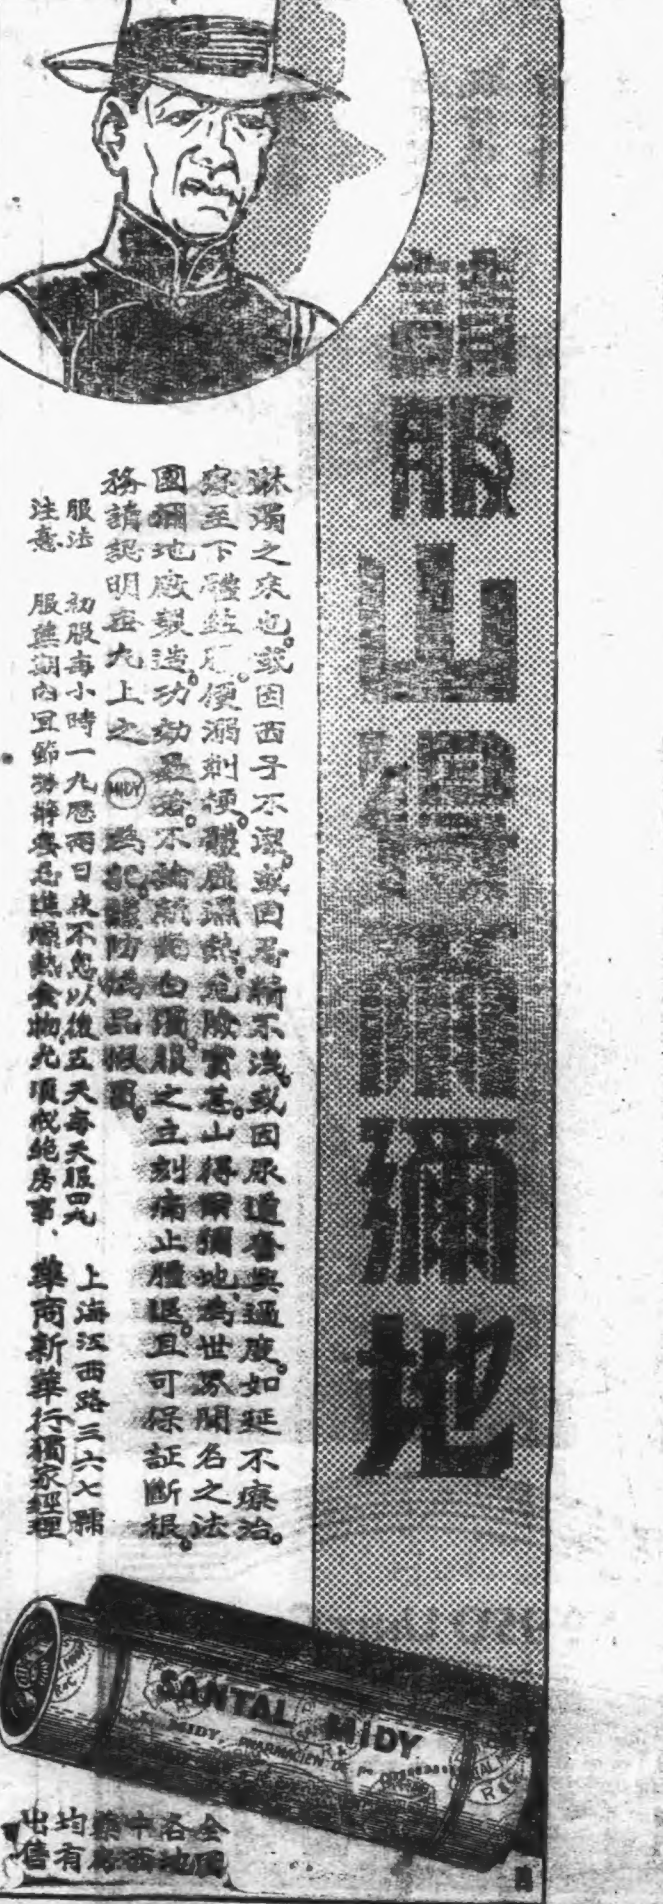 請服山得爾彌地
淋濁之來也。或因西子不潔。或因忍精不洩。或因尿道奮興過度。如延不療治。
至下體紅腫。便溺刺梗。危險實甚。山得爾彌地為世界聞名之法
國彌地廠製造。功効最著。不論新舊白濁。服之立刻痛止腫退。且可保証斷根。
務請認明每丸上之 MIDY 為記。謹防偽品假冒。
服法 初服每小時一丸歷兩日夜不怠以後五天每天服四丸
注意 服藥期內宜節勞靜養忌進燥熱食物尤須戒絕房事
上海江西路三六七號
商新華行獨家經理
SANTAL MIDY
MIDY, PHARMACIEN DE
全國
各地
中西
藥房
均有
出售